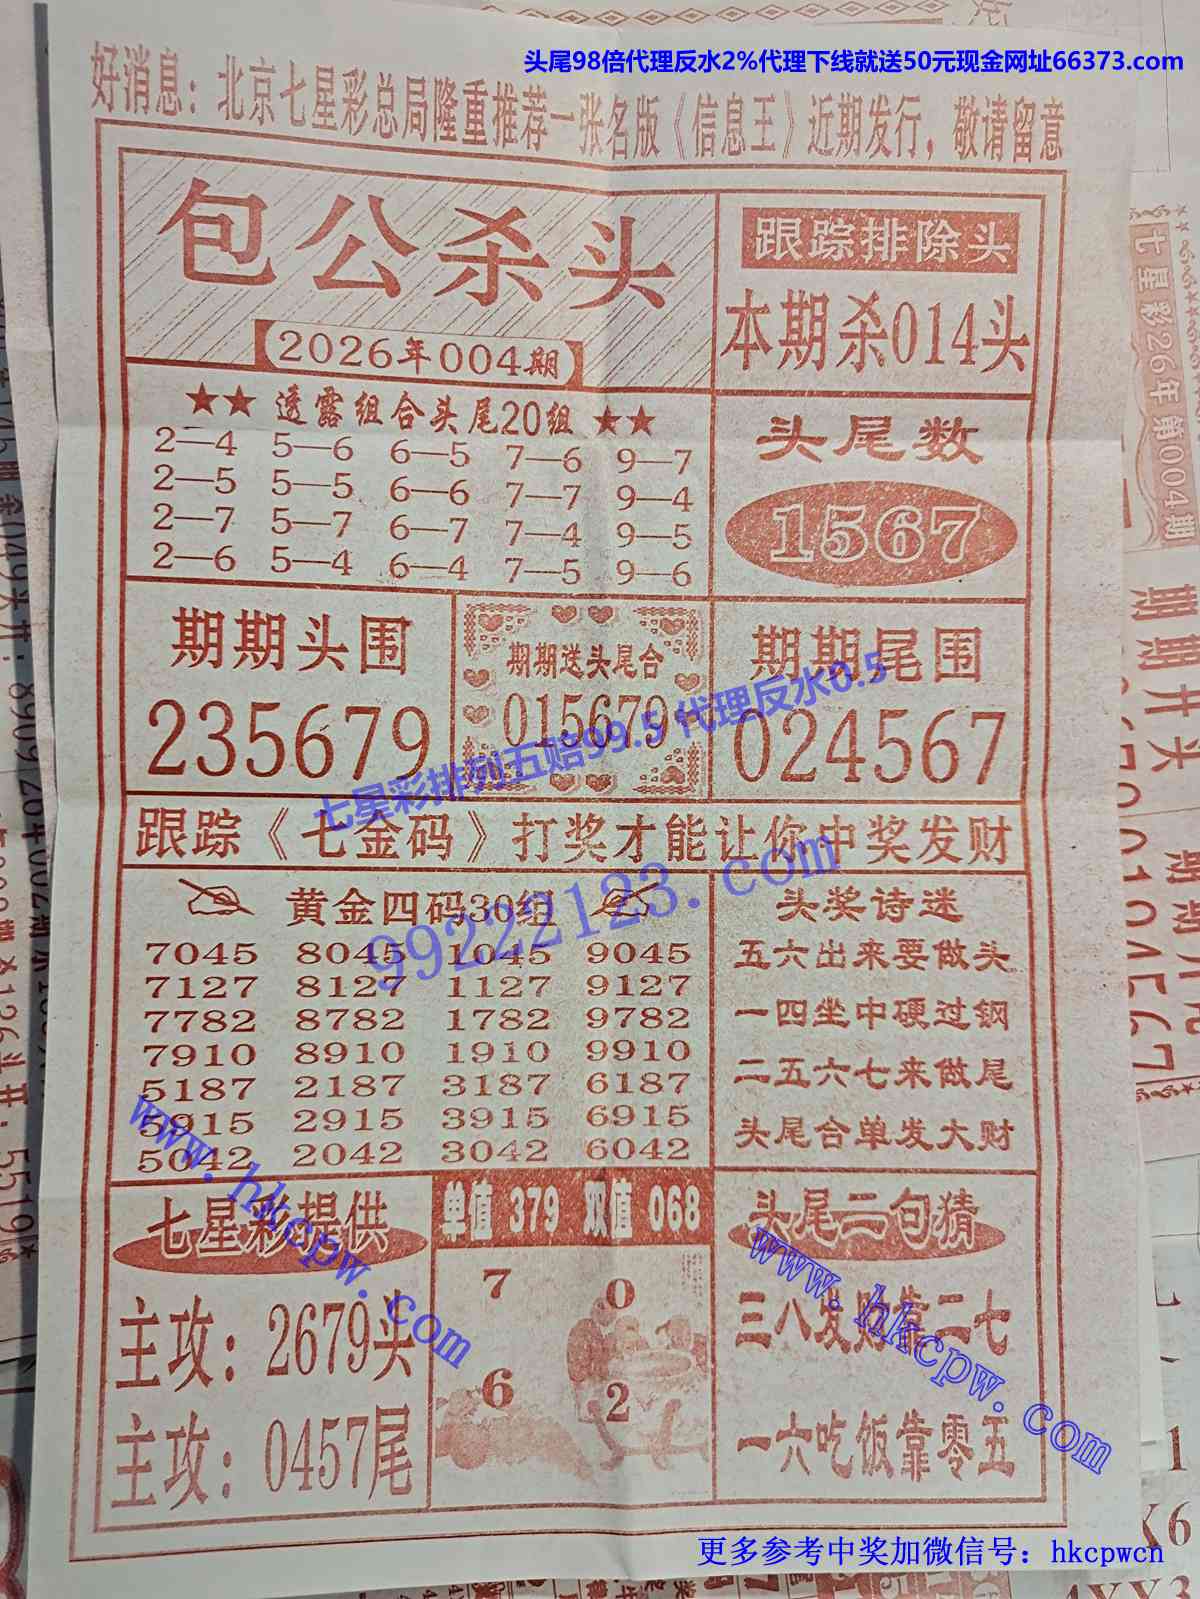 头尾98倍代理反水2%代理下线就送50元现金网址66373.com
好消息：北京七星彩总局隆重推荐一张名版《信息王》近期发行，敬请留意
包公杀头
2026年004期
跟踪排除头
本期杀014头
★★ 透露组合头尾20组 ★★
2—4 5—6 6—5 7—6 9—7
2—5 5—5 6—6 7—7 9—4
2—7 5—7 6—7 7—4 9—5
2—6 5—4 6—4 7—5 9—6
头尾数
1567
期期头围
235679
期期送头尾合
015679
期期尾围
024567
七星彩排列五赔99.5 代理反水0.5
跟踪《七金码》打奖才能让你中奖发财
99222123.com
黄金四码30组
7045 8045 1045 9045
7127 8127 1127 9127
7782 8782 1782 9782
7910 8910 1910 9910
5187 2187 3187 6187
5915 2915 3915 6915
5042 2042 3042 6042
头奖诗迷
五六出来要做头
一四坐中硬过钢
二五六七来做尾
头尾合单发大财
www.hkcpw.com
七星彩提供
主攻：2679头
主攻：0457尾
单值 379 双值 068
7 0
6 2
头尾二句猜
三八发财靠二七
一六吃饭靠零五
www.hkcpw.com
更多参考中奖加微信号：hkcpwcn
七星彩26年第004期
期期开头